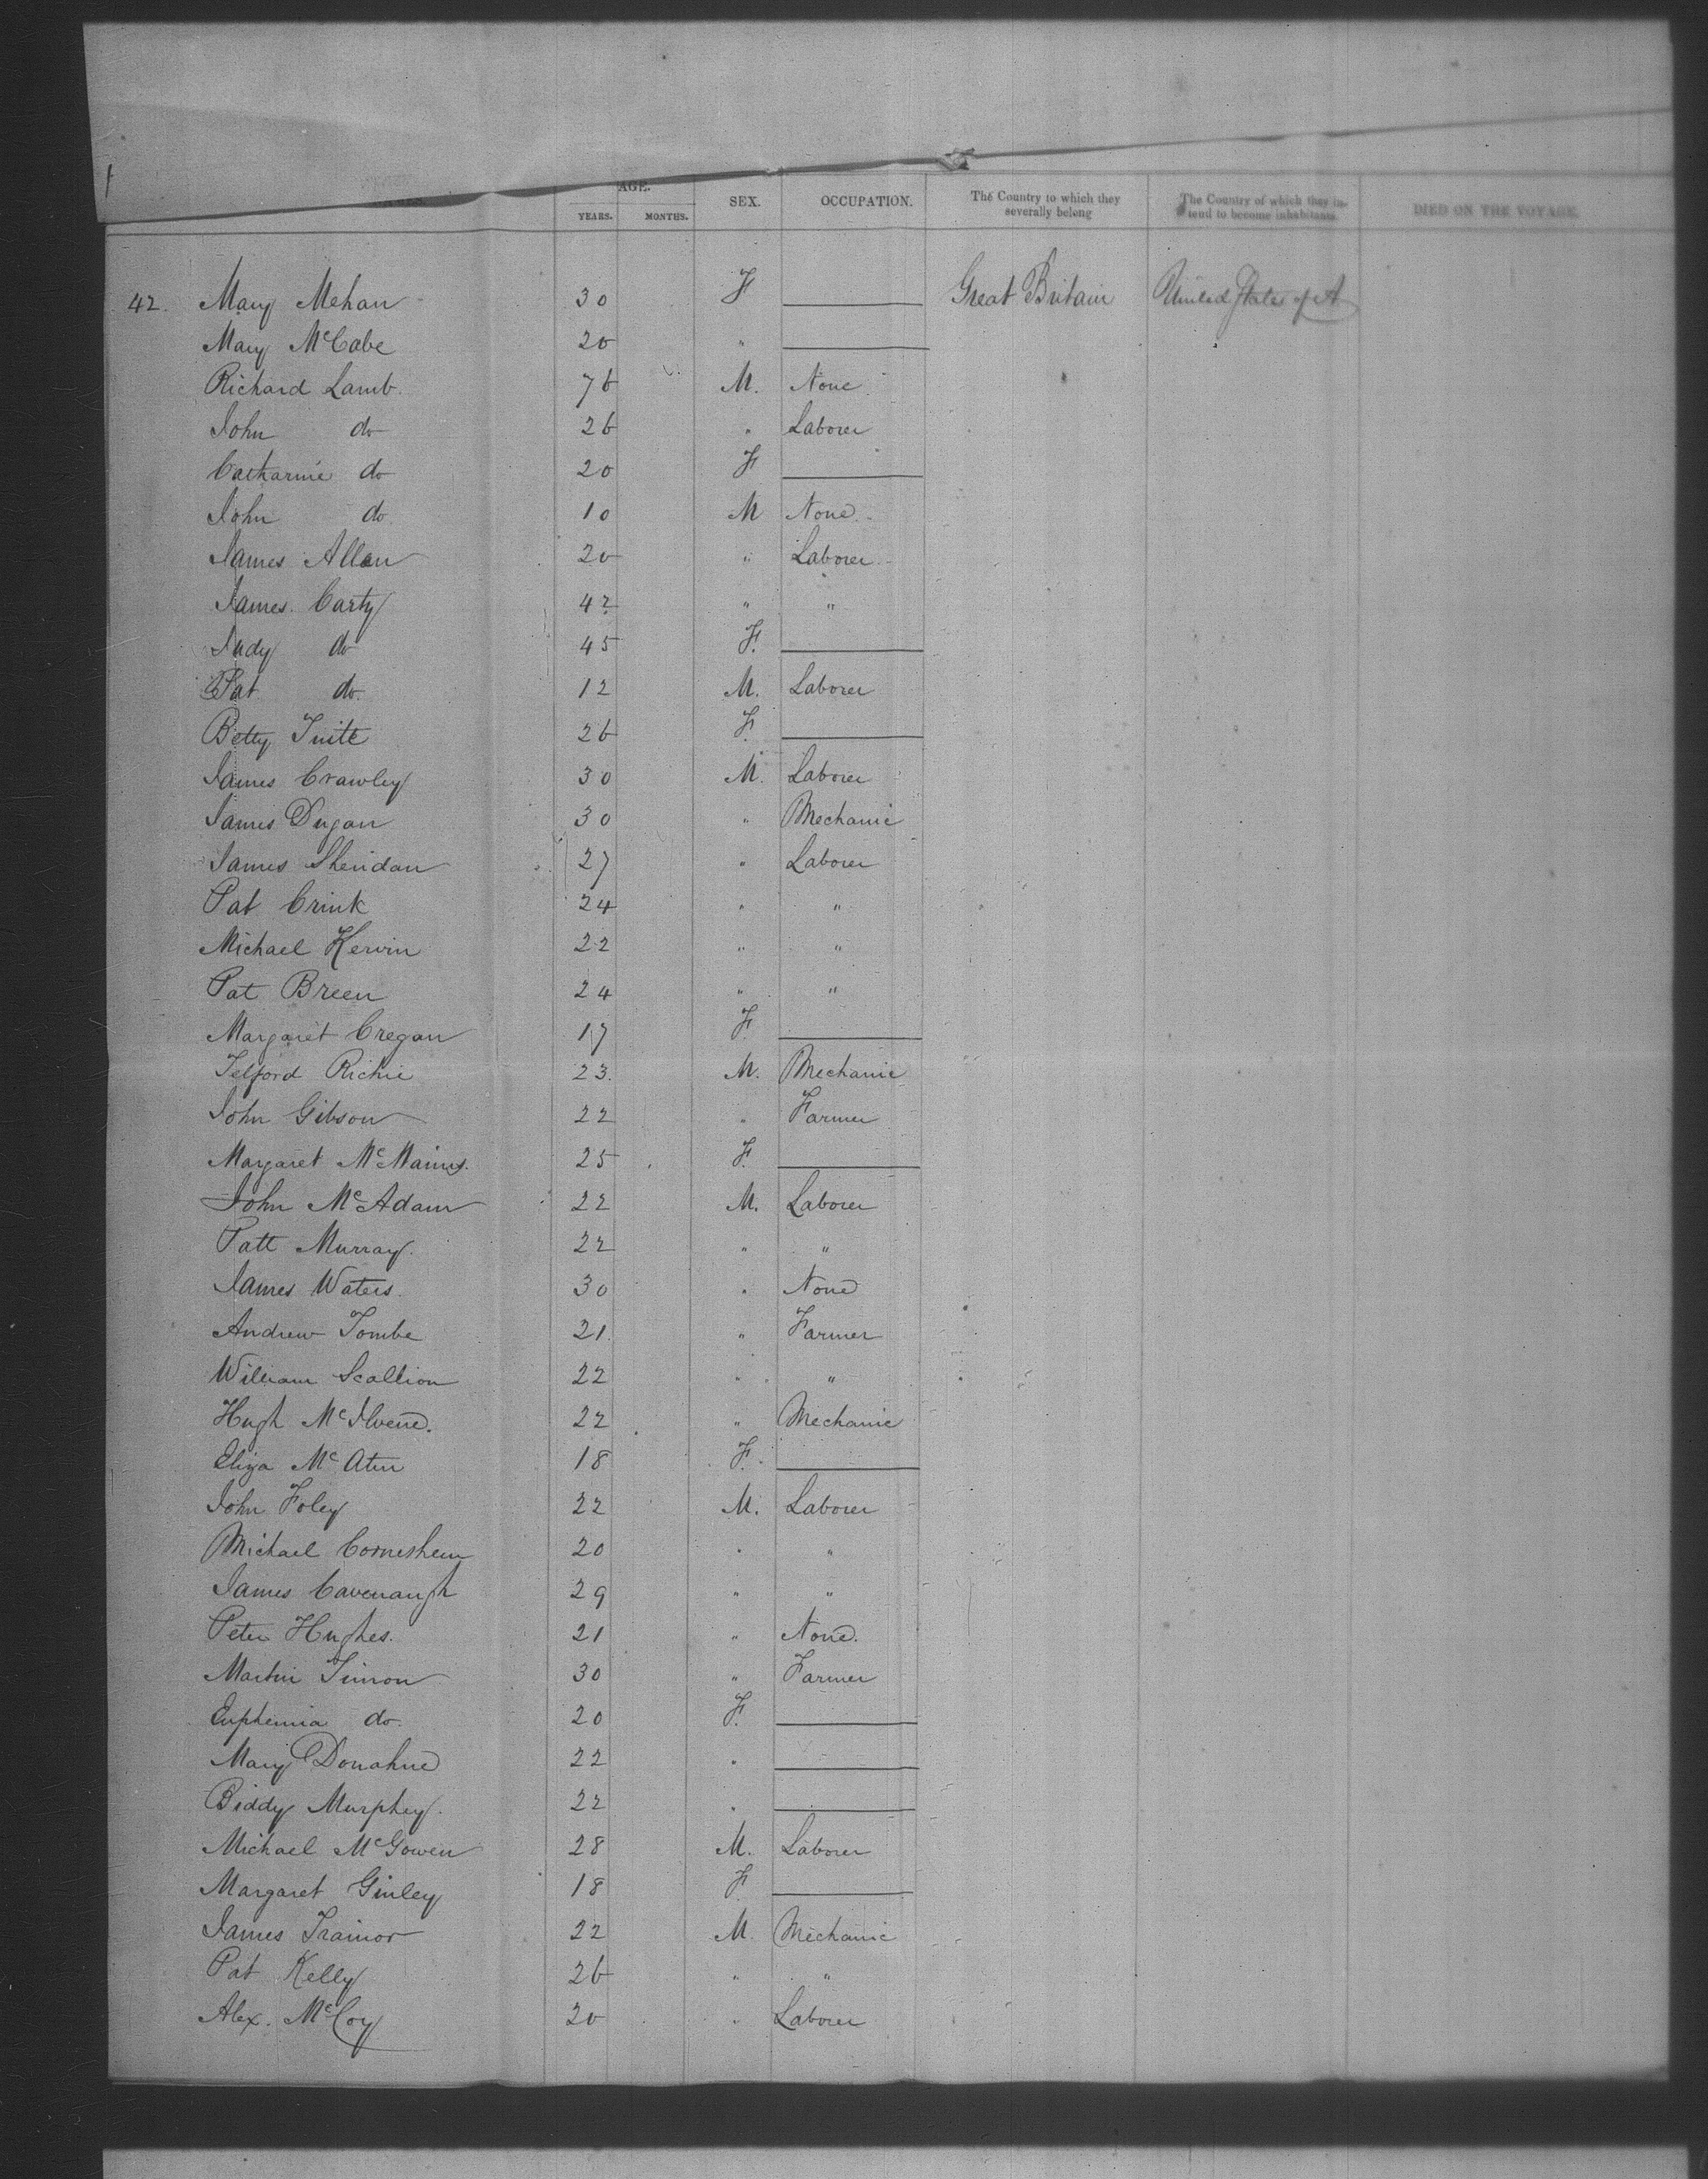 AGE.
YEARS. MONTHS. SEX. OCCUPATION. The Country to which they severally belong The Country of which they intend to become inhabitants. DIED ON THE VOYAGE.
42. Mary Mehan 30 F Great Britain United States of A
Mary McCabe 20 "
Richard Lamb. 76 M. None
John do 26 " Laborer
Catharine do 20 F
John do 10 M None
James Allen 20 " Laborer
James Carty 42 " "
Judy do 45 F.
Pat do. 12 M. Laborer
Betty Tuite 26 F.
James Crawley 30 M. Laborer
James Dugan 30 " Mechanic
James Sheridan 27 " Laborer
Pat Crink 24 " "
Michael Kervin 22 " "
Pat Breen 24 " "
Margaret Cregan 17 F.
Telford Richie 23. M. Mechanic
John Gibson 22 " Farmer
Margaret 25 F.
John McAdam 22 M. Laborer
Patt Murray. 22 " "
James Waters. 30 " None
Andrew Tombe 21. " Farmer
William Scallion 22 " "
Hugh 22 " Mechanic
Eliza 18 F.
John Foley 22 M. Laborer
Michael 20 " "
James Cavenaugh 29 " "
Peter Hughes. 21 " None.
Martin Timon 30 " Farmer
Euphemia do. 20 F.
Mary Donahue 22 "
Biddy Murphey. 22 "
Michael McGowen 28 M. Laborer
Margaret Ginley 18 F
James Trainor 22 M. Mechanic
Pat Kelly 26 " "
Alex. McCoy 20 " Laborer